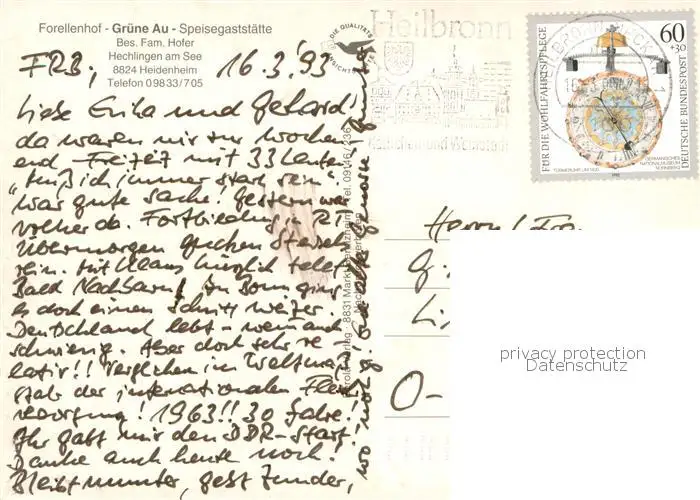 Forellenhof - Grüne Au - Speisegaststätte
Bes. Fam. Hofer
Hechlingen am See
8824 Heidenheim
Telefon 09833/705
DIE QUALITÄTS
ANSICHTSKARTE
Heilbronn
60
+30
FÜR DIE WOHLFAHRTSPFLEGE
DEUTSCHE BUNDESPOST
GERMANISCHES
NATIONALMUSEUM
NÜRNBERG
16.3.'93
Liebe Erika und Gerhard!
da waren wir zur Wochen-
end Freizeit mit 33 Leuten
"Muß ich immer stark sein"
war gute Sache! Gestern war
Volker da. Fortbildung in
Übermorgen
rein. Mit Klaus kürzlich telef.
Bald Nachbarn! In Bonn ging
es doch einen Schritt weiter.
Deutschland lebt - wenn auch
schwierig. Aber doch sehr re-
lativ!! Verglichen im Weltmaß-
stab der internationalen
1963!! 30 Jahre!
Ihr gabt mir den DDR-Start.
Danke auch heute noch!
Bleibt munter, gebt Zunder,
8831 Markt Berolzheim
Tel. 09146/236
Herrn/Fr.
G.
O-
privacy protection
Datenschutz